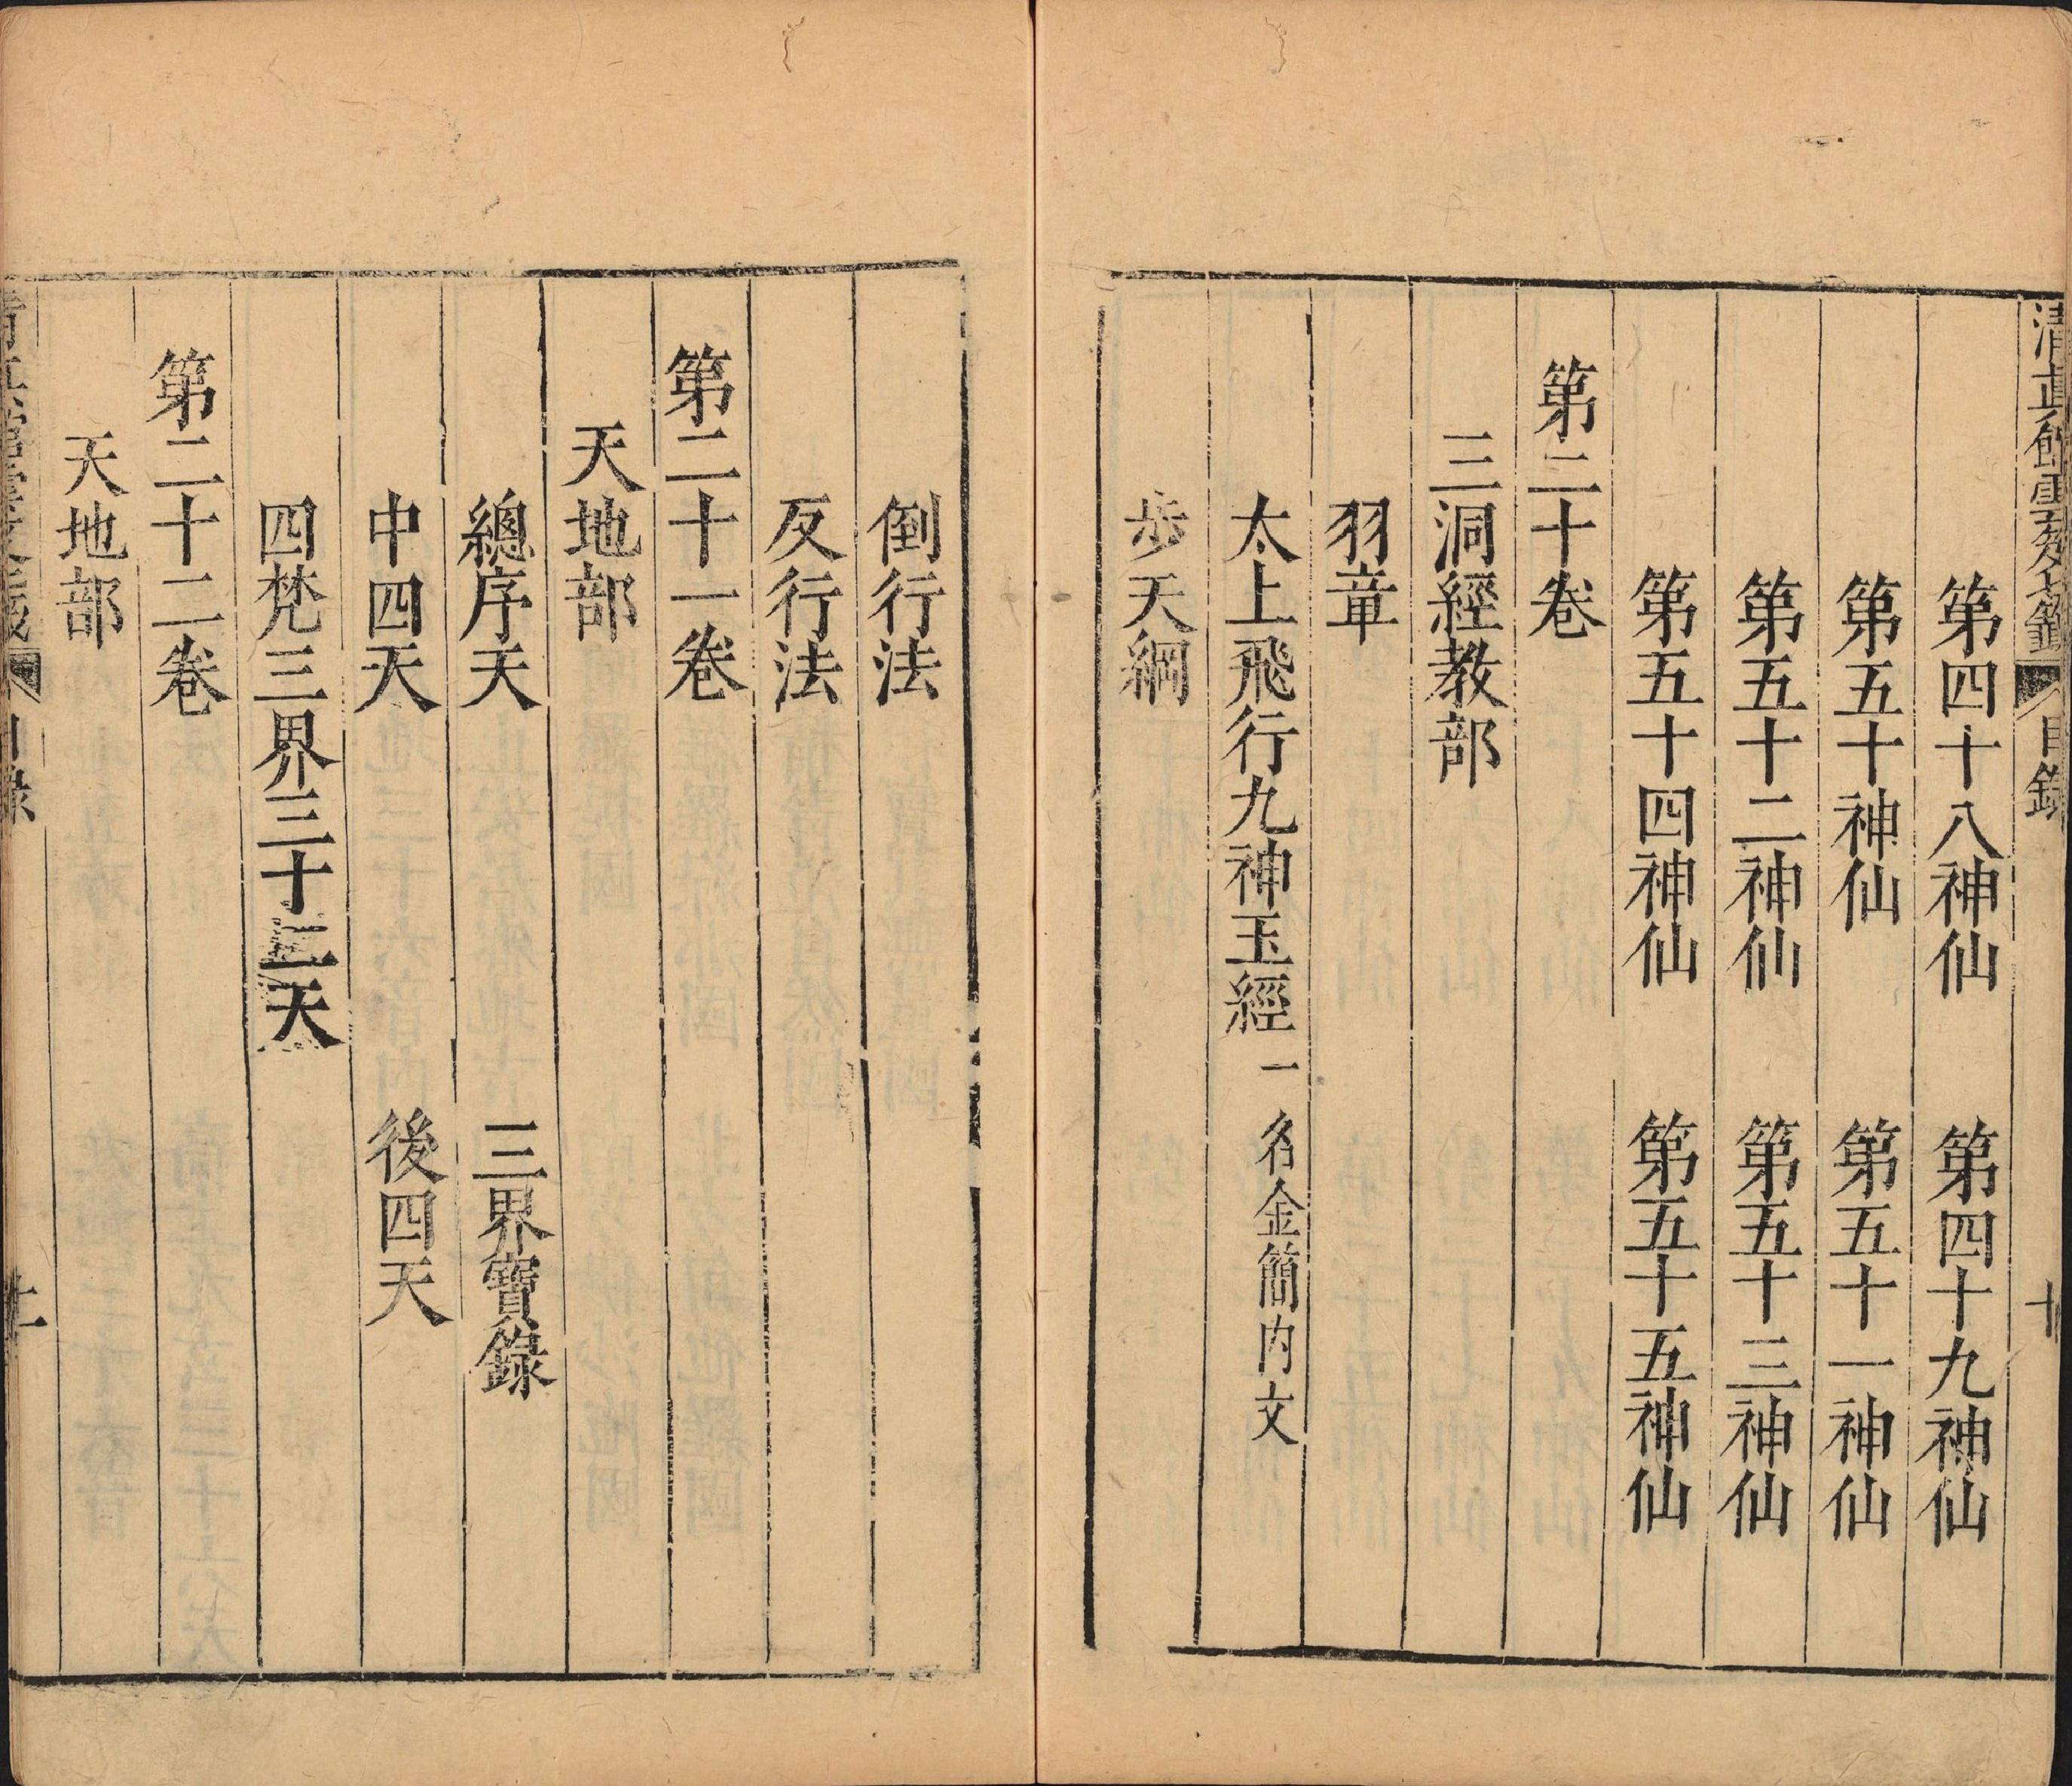 第四十八神仙　第四十九神仙
第五十神仙　第五十一神仙
第五十二神仙　第五十三神仙
第五十四神仙　第五十五神仙
第二十卷
三洞經教部
羽章
太上飛行九神玉經一名金簡內文
步天綱
倒行法
反行法
第二十一卷
天地部
總序天　三界寶錄
中四天　後四天
四梵三界三十二天
第二十二卷
天地部
目錄